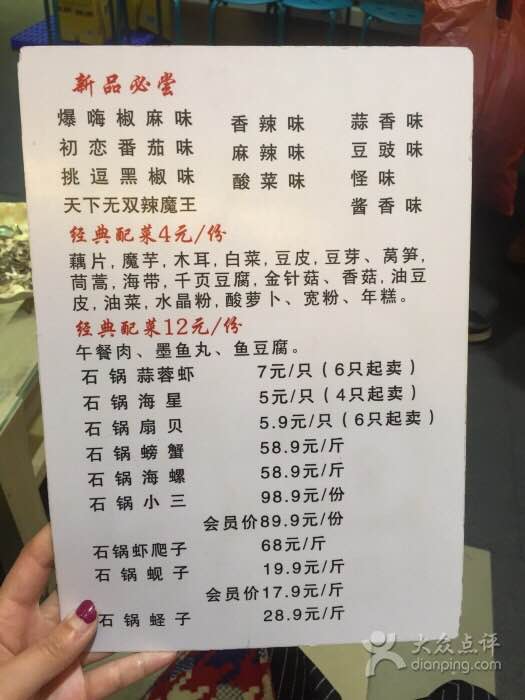 新品必尝
爆嗨椒麻味 香辣味 蒜香味
初恋番茄味 麻辣味 豆豉味
挑逗黑椒味 酸菜味 怪味
天下无双辣魔王 酱香味
经典配菜4元/份
藕片,魔芋,木耳,白菜,豆皮,豆芽、莴笋,
茼蒿,海带,千页豆腐,金针菇、香菇,油豆
皮,油菜,水晶粉,酸萝卜、宽粉、年糕。
经典配菜12元/份
午餐肉、墨鱼丸、鱼豆腐。
石锅蒜蓉虾 7元/只(6只起卖)
石锅海星 5元/只(4只起卖)
石锅扇贝 5.9元/只(6只起卖)
石锅螃蟹 58.9元/斤
石锅海螺 58.9元/斤
石锅小三 98.9元/份
会员价89.9元/份
石锅虾爬子 68元/斤
石锅蚬子 19.9元/斤
会员价17.9元/斤
石锅蛏子 28.9元/斤
大众点评
dianping.com